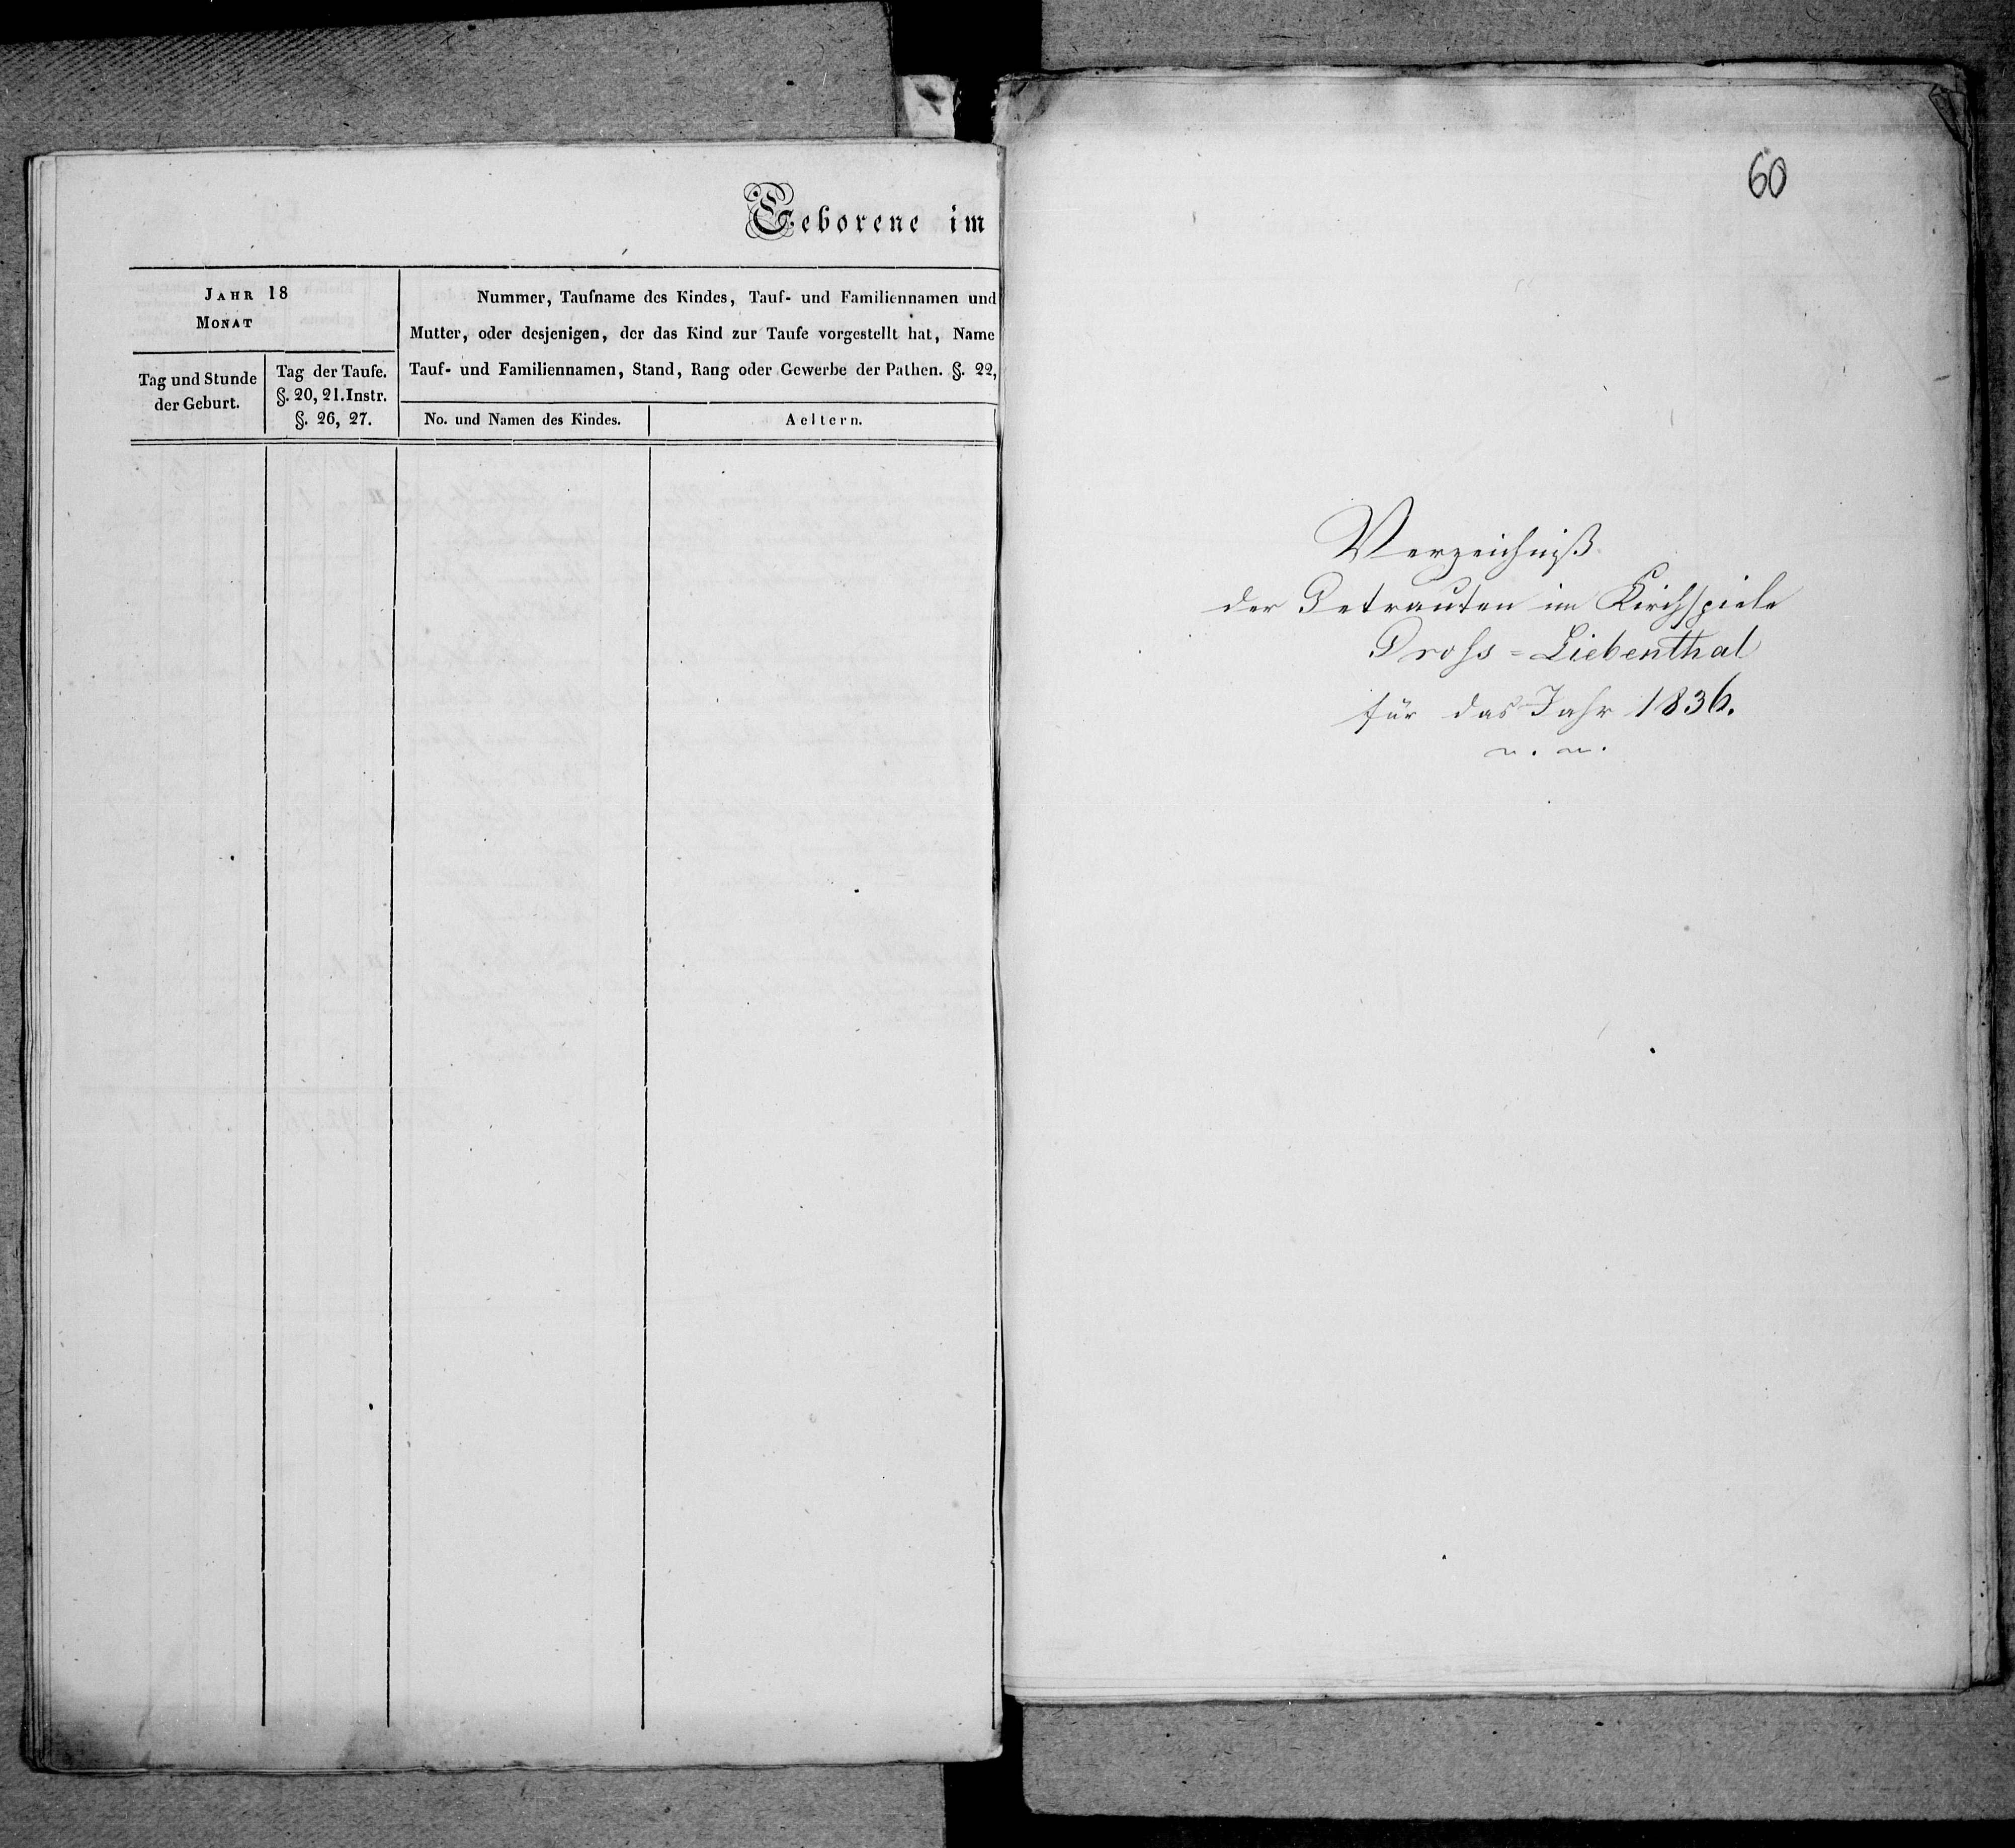 Geborene im
JAHR 18
MONAT
Tag und Stunde
der Geburt.
Tag der Taufe.
§. 20, 21. Instr.
§. 26, 27.
Nummer, Taufname des Kindes, Tauf- und Familiennamen und
Mutter, oder desjenigen, der das Kind zur Taufe vorgestellt hat, Name
Tauf- und Familiennamen, Stand, Rang oder Gewerbe der Pathen. §. 22,
No. und Namen des Kindes.
Aeltern.
60
Verzeichniß
der Getrauten im Kirchspiele
Groſs=Liebenthal
für das Jahr 1836.